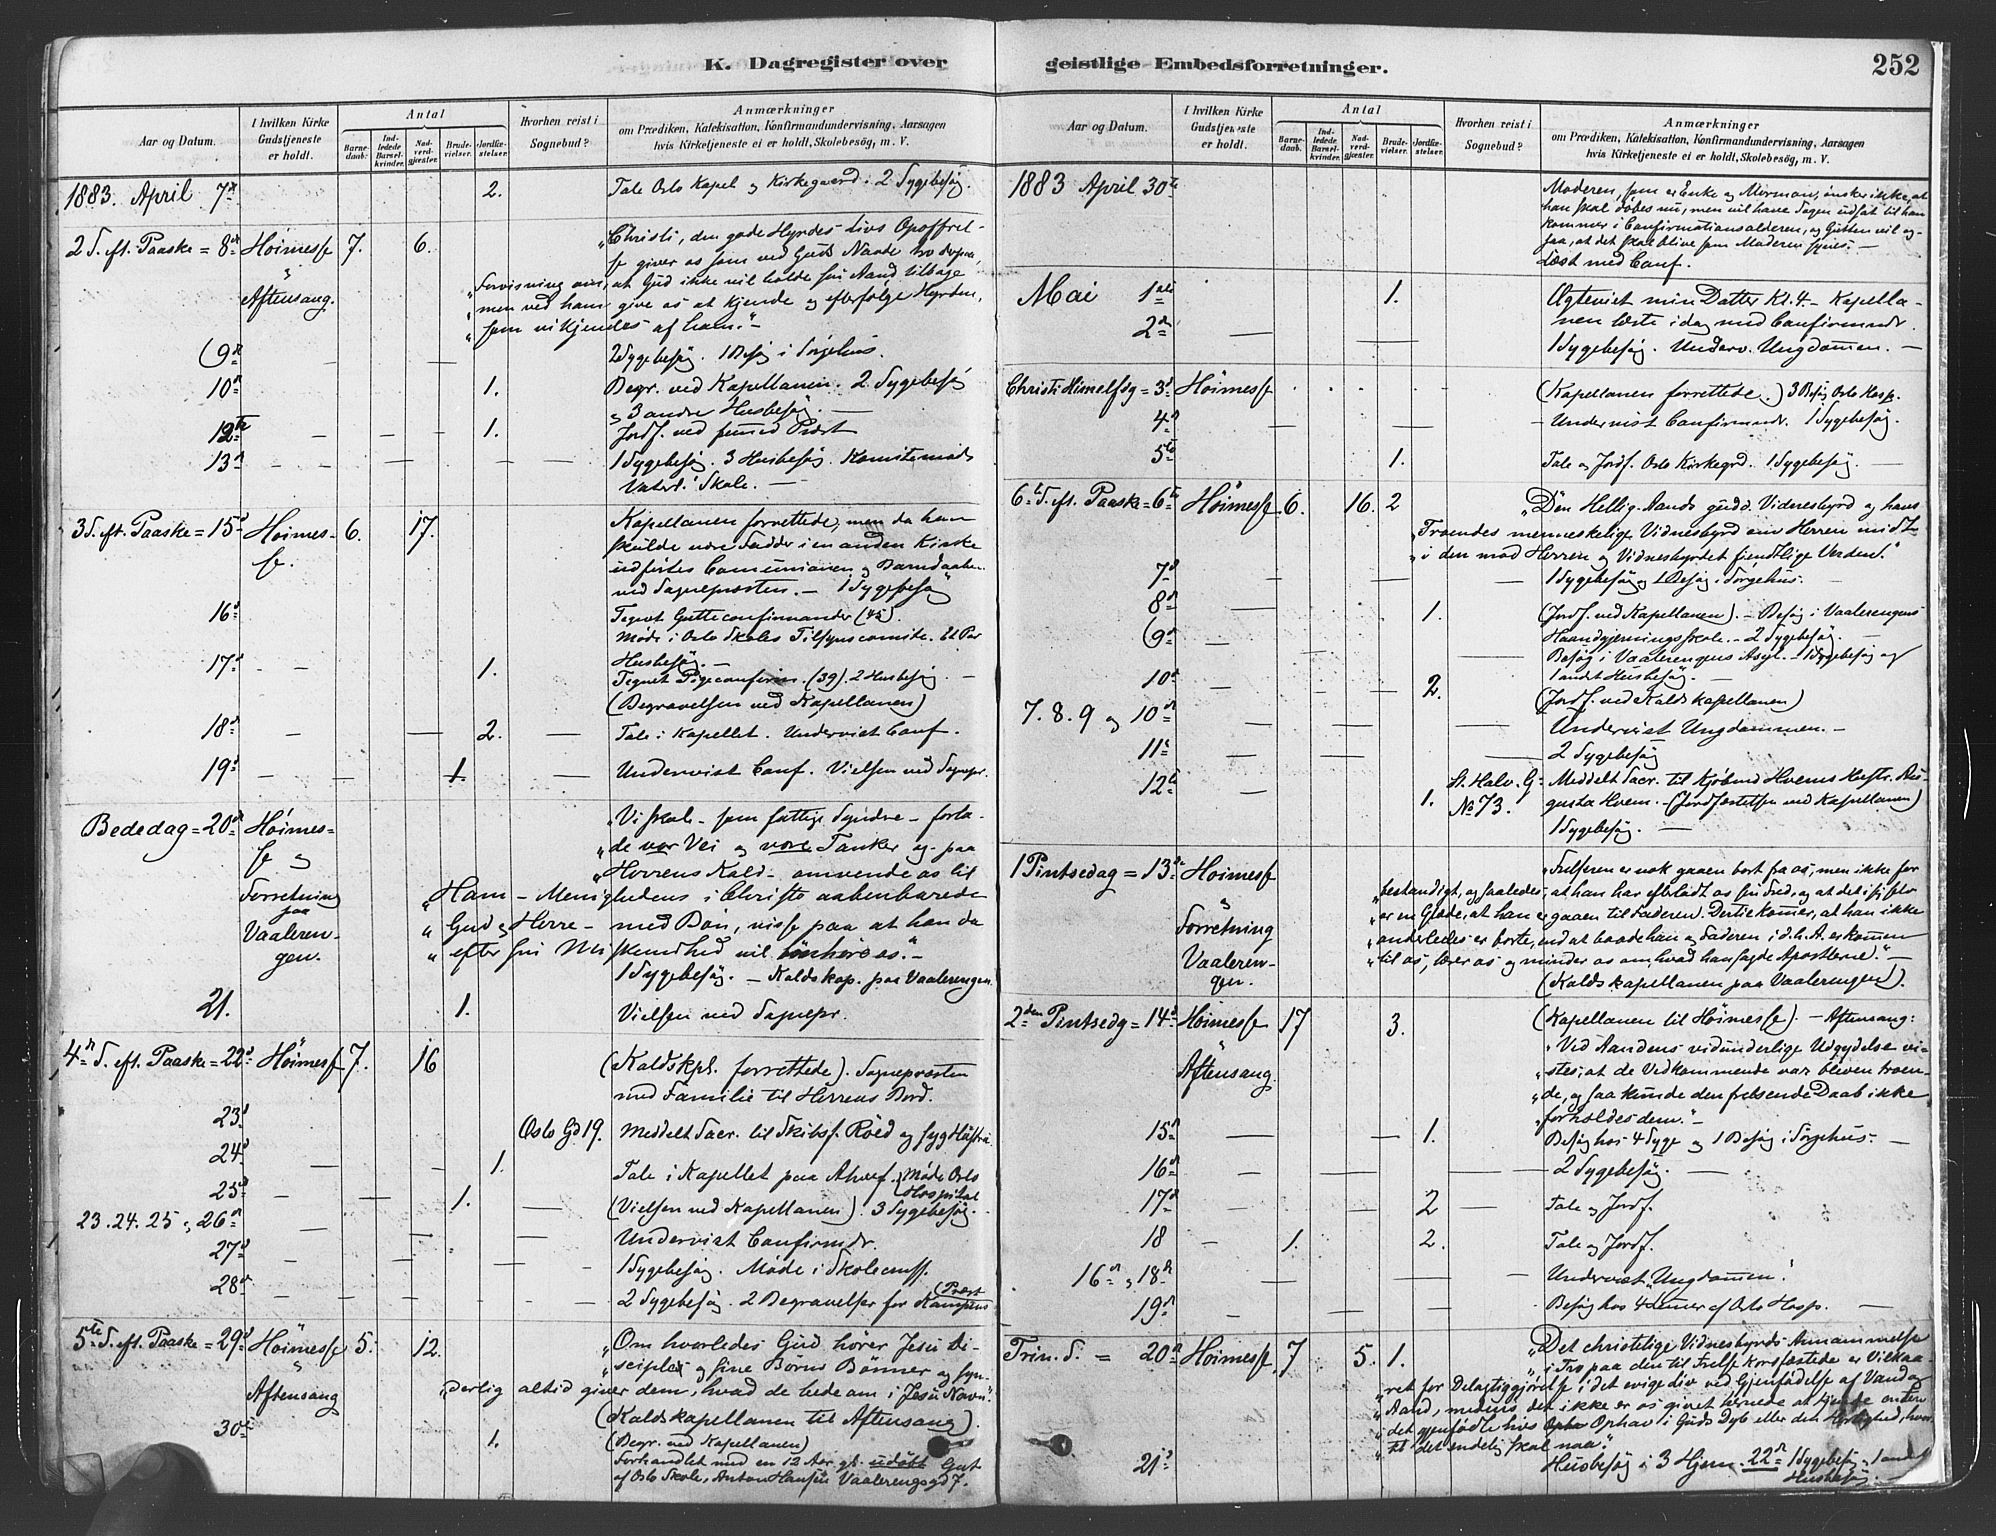 K. Dagregister over
Aar og Datum.
I hvilken Kirke Gudstjeneste er holdt.
Antal
Barne-daab.
Ind-ledede Barsel-kvinder.
Nad-verd-gjester.
Brude-vielser.
Jordfæ-stelser.
Hvorhen reist i Sognebud?
Anmærkninger
om Prædiken, Katekisation, Konfirmandundervisning, Aarsagen
hvis Kirketjeneste ei er holdt, Skolebesög, m. V.
1883. April 7de 2. Tale Oslo Kapel og Kirkegaard. 2 Sygebesøg.
2 S. eft. Paaske = 8de Höimesse 7. 6. „Christi, den gode Hyrdes Livs Opoffrel-
se giver os som ved Guds Naade tro derpaa,
„Forvisning om, at Gud ikke vil holde sin Aand tilbage
Aftensang. „men ved ham give os at kjende og efterfølge Hyrden,
„som vi kjendes af ham.“ –
(9de 2 Sygebesøg. 1 Besøg i Sorgehus.
10de 1. Begr. ved Kapellanen. 2 Sygebesøg
og 3 andre Husbesøg. –
12te 1. Jordf. ved Præst
13de 1 Sygebesøg. 3 Husbesøg. Komitemøde
Skole. –
3 S. eft. Paaske = 15de Höimes- 6. 17. Kapellanen forrettede, men da han
se. skulde være Fadder i en anden Kirke
udførtes Communionen og Barnedaaben
ved Sognepræsten. – 1 Sygebesøg
16de Tegnet Gutteconfirmander (45).
Møde i Oslo Skoles Tilsynscomite. Et Par
Husbesøg. –
17de 1. Tegnet Pigeconfirm. (39). 2 Husbesøg. –
(Begravelsen ved Kapellanen)
18de 2. Tale i Kapellet. Undervist Conf.
19de 1. Undervist Conf. Vielsen ved Sognepr.
Bededag = 20de Höimes- „Vi skal – som fattige Syndre – forla-
se og „de vor Vei og vore Tanker og paa
„Herrens Kald – omvende os til
Forretning „Ham – Menighedens i Christo aabenbarede
paa „Gud og Herre – med Bön, visse paa at han da
Vaaleren- „efter sin Miskundhed vil bönhöre os.“ –
gen. 1 Sygebesøg. – Kaldskap. paa Vaalerengen.
21. 1. Vielsen ved Sognepr.
4de S. eft. Paaske = 22de Höimesse 7. 16 (Kaldskpl. forrettede). Sognepræsten
med Familie til Herrens Bord.
23de Oslo Gd 19. Meddelt Sacr. til Skibsf. Röed og syg Hustru
24de 1. Tale i Kapellet paa {Møde Oslo
Hospital
25de 1. (Vielsen ved Kapellanen). 3 Sygebesøg.
23. 24. 25 og 26de Undervist Confirmdr.
27de 1 Sygebesøg. Møde i
28de 2 Sygebesøg. 2 Begravelser for Kampens Præst
5te S. eft. Paaske = 29de Höimesse 5. 12. „Om hvorledes Gud hører Jesu Di-
„sciples og sine Børns Bønner og syn-
Aftensang „derlig altid giver dem, hvad de bede om i Jesu Navn“.
(Kaldskapellanen til Aftensang).
30de 1. (Begr. ved Kapellanen)
Forhandlet med en 12 Aar gl. udøbt Gut
af Oslo Skole, Anton Hansen Vaalerengsgd 7.
geistlige Embedsforretninger.
252
Aar og Datum.
I hvilken Kirke Gudstjeneste er holdt.
Antal
Barne-daab.
Ind-ledede Barsel-kvinder.
Nad-verd-gjester.
Brude-vielser.
Jordfæ-stelser.
Hvorhen reist i Sognebud?
Anmærkninger
om Prædiken, Katekisation, Konfirmandundervisning, Aarsagen
hvis Kirketjeneste ei er holdt, Skolebesög, m. V.
1883 April 30te Moderen, som er Enke og Mormon, ønsker ikke, at
han skal døbes nu, men vil have Sagen udsat til han
kommer i Confirmationsalderen, og Gutten vil og-
saa, at det skal blive som Moderen synes. –
Læst med Conf.
Mai 1ste 1. Ægteviet min Datter Kl. 4. – Kapella-
2den nen læste idag med Confirmndr.
1 Sygebesøg. Underv. Ungdommen. –
Christi Himelfsdg = 3de Höimesse (Kapellanen forrettede.) 3 Besøg Oslo Hosp.
4de Undervist Confirmndr. 1 Sygebesøg.
5te 1. Tale og Jordf. Oslo Kirkegrd. 1 Sygebesøg. –
6te S. eft. Paaske = 6te Höimesse 6. 16. 2 „Den Hellig-Aands gudd. Vidnesbyrd og hans
„Troendes menneskelige Vidnesbyrd om Herren midt
„i den mod Herren og Vidnesbyrdet fiendtlige Verden.“
7de 1 Sygebesøg og 1 Besøg i Sorgehus. –
8de 1. (Jordf. ved Kapellanen). – Besøg i Vaalerengens
(9de Haandgjerningsskole. – 2 Sygebesøg. –
Besøg i Vaalerengens Asyl. – 1 Sygebesøg og
1 andet Husbesøg. –
10de 2. (Jordf. ved Kaldskapellanen)
7. 8. 9 og 10de Undervist Ungdommen. –
11te 2 Sygebesøg
12te St. Halv. G: Meddelt Sacr. til Kjøbmd Hvems Hustr. Au-
1. No 73. gusta Hvem. – (Jordfæstelsen ved Kapellanen)
1 Sygebesøg. –
1 Pintsedag = 13de Höimesse „Frelseren er nok gaaen bort fra os, men ikke for
„bestandigt, og saaledes, at han har efterladt os sin Fred, og at det i sig selv
Forretning „er en Glæde, at han er gaaen til Faderen. Dertil kommer, at han ikke
Vaaleren- „anderledes er borte, end at baade han og Faderen i d. h. A. er kommen
gen. „til os, lærer os og minder os om, hvad han sagde Apostlerne.“ –
(Kaldskapellanen paa Vaalerengen).
2den Pintsedg = 14de Höimesse 17 3. (Kapellanen til Höimesse). – Aftensang:
„Ved Aandens vidunderlige Udgydelse vi-
Aftensang. „stes, at de Vedkommende var bleven troen-
„de, og saa kunde den frelsende Daab ikke
„forholdes dem.“ –
15de 1. Besøg hos 4 Syge og 1 Besøg i Sorgehus. –
16de 2 Sygebesøg. –
17de 2 Tale og Jordf.
18 1. 2. Tale og Jordf.
16de og 18de Undervist „Ungdommen“.
19de Besøg hos 4 Lemer af Oslo Hosp. –
Trin. S. = 20de Höimesse 7 5. 1. „Det christelige Vidnesbyrds Annammelse
„i Tro paa den til Frelse Korsfæstede er Vilkaa-
„ret for Delagtiggjörelse i det evige Liv ved Gjenfödelse af Vand og
„Aand, medens det ikke er os givet hernede at kjende enten
„det gjenfødte Livs Ophav i Guds Dyb eller den Herlighed, hvor-
„til det endelig skal naa.“
21de Husbesøg i 3 Hjem. 22de 1 Sygebesøg. 1 andet
Husbesøg. –